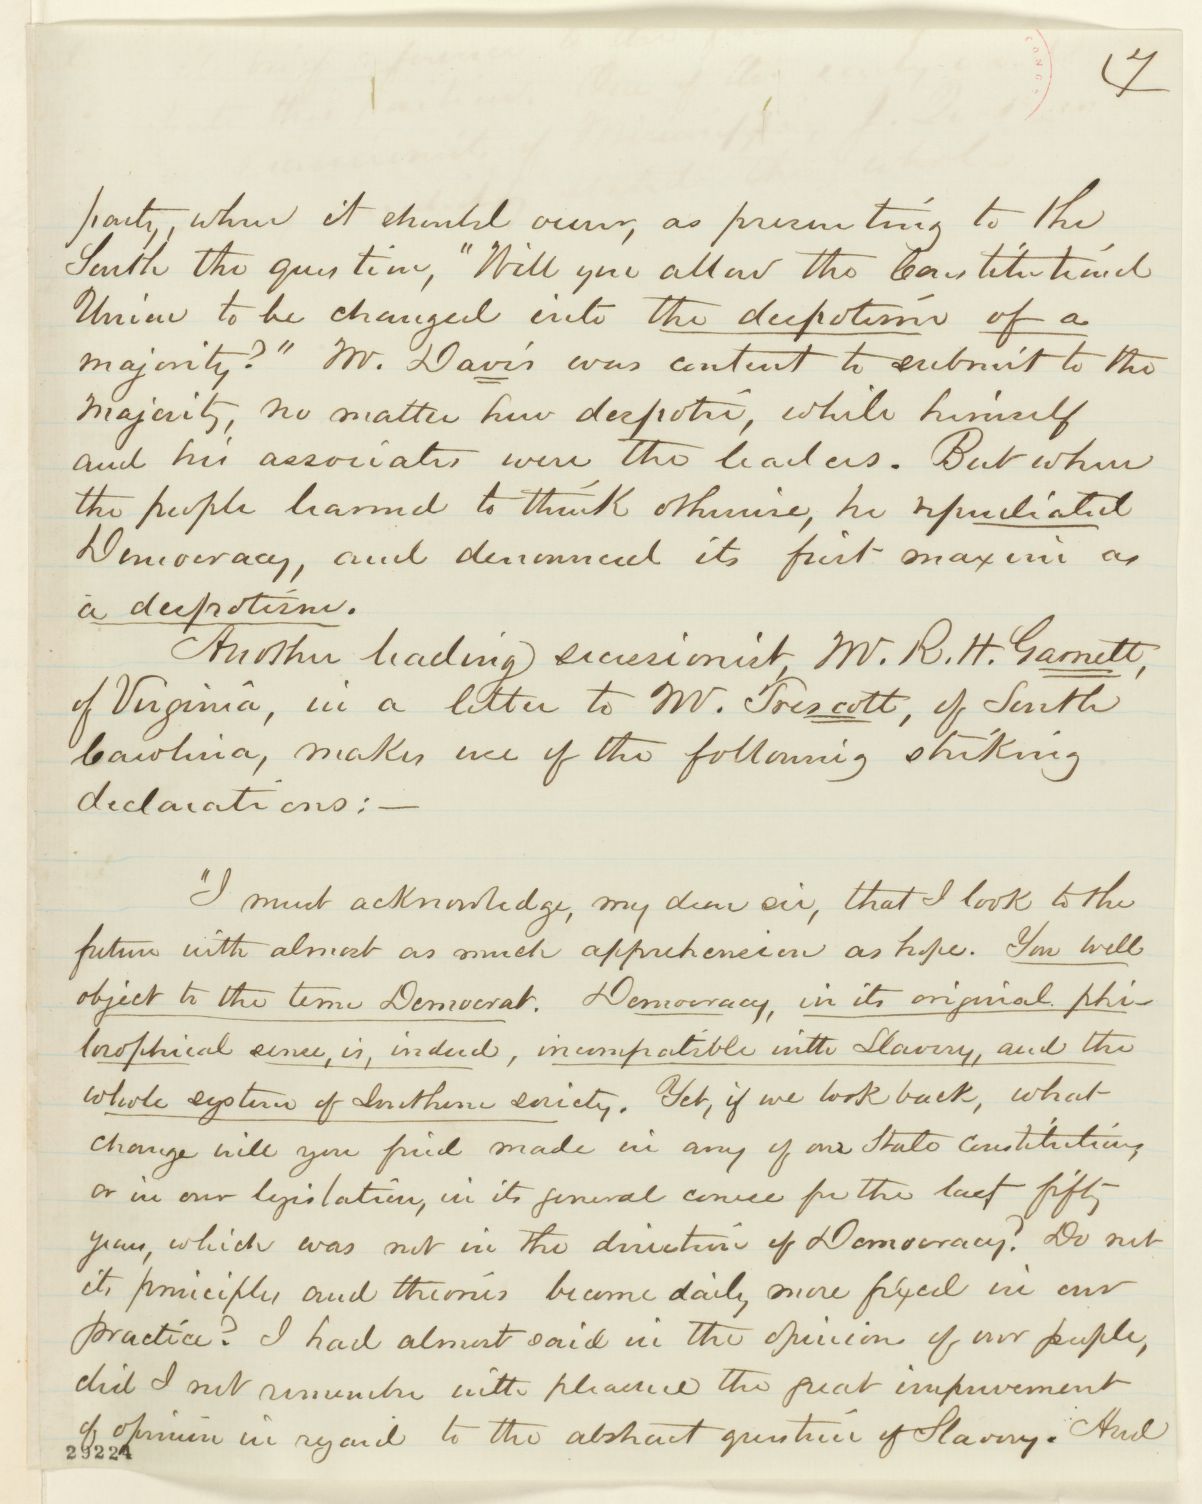 7
party, when it should occur, as presenting to the
South the question, "Will you allow the Constitutional
Union to be changed into the despotism of a
majority?" Mr. Davis was content to submit to the
majority, no matter how despotic, while himself
and his associates were the leaders. But when
the people learned to think otherwise, he repudiated
Democracy, and denounced its first maxim as
a despotism.
Another leading secessionist, Mr. R. H. Garnett,
of Virginia, in a letter to Mr. Trescott, of South
Carolina, makes use of the following striking
declarations:—
"I must acknowledge, my dear sir, that I look to the
future with almost as much apprehension as hope. You well
object to the term Democrat. Democracy, in its original phi-
losophical sense, is, indeed, incompatible with Slavery, and the
whole system of Southern society. Yet, if we look back, what
change will you find made in any of our State constitutions,
or in our legislation, in its general course for the last fifty
years, which was not in the direction of Democracy? Do not
its principles and theories become daily more fixed in our
practice? I had almost said in the opinions of our people,
did I not remember with pleasure the great improvement
of opinion in regard to the abstract question of Slavery. And
29224